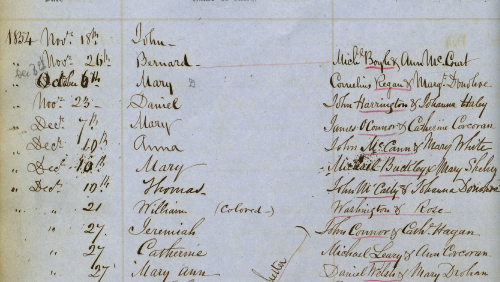 1854 Novr. 18th John
" Novr. 26th Bernard Michl Boyle & Ann McCourt
" October 6th Mary Cornelius Regan & Margt. Donohoe
" Novr. 23 Daniel John Harrington & Johanna
" Dect. 7th Mary James O'Connor & Catherine Corcoran
" Dect. 10th Anna John McCann & Mary White
" Dect. 10th Mary Michael Buckley & Mary Sheehy
" Dect. 10th Thomas John McCarthy & Johanna Donohoe
" " 21 William (Colored) Washington & Rose
" " 27 Jeremiah John Connor & Cath. Hagan
" 27 Catherine Michael Leary & Ann Corcoran
" 27 Mary ann Daniel Welsh & Mary Drohan